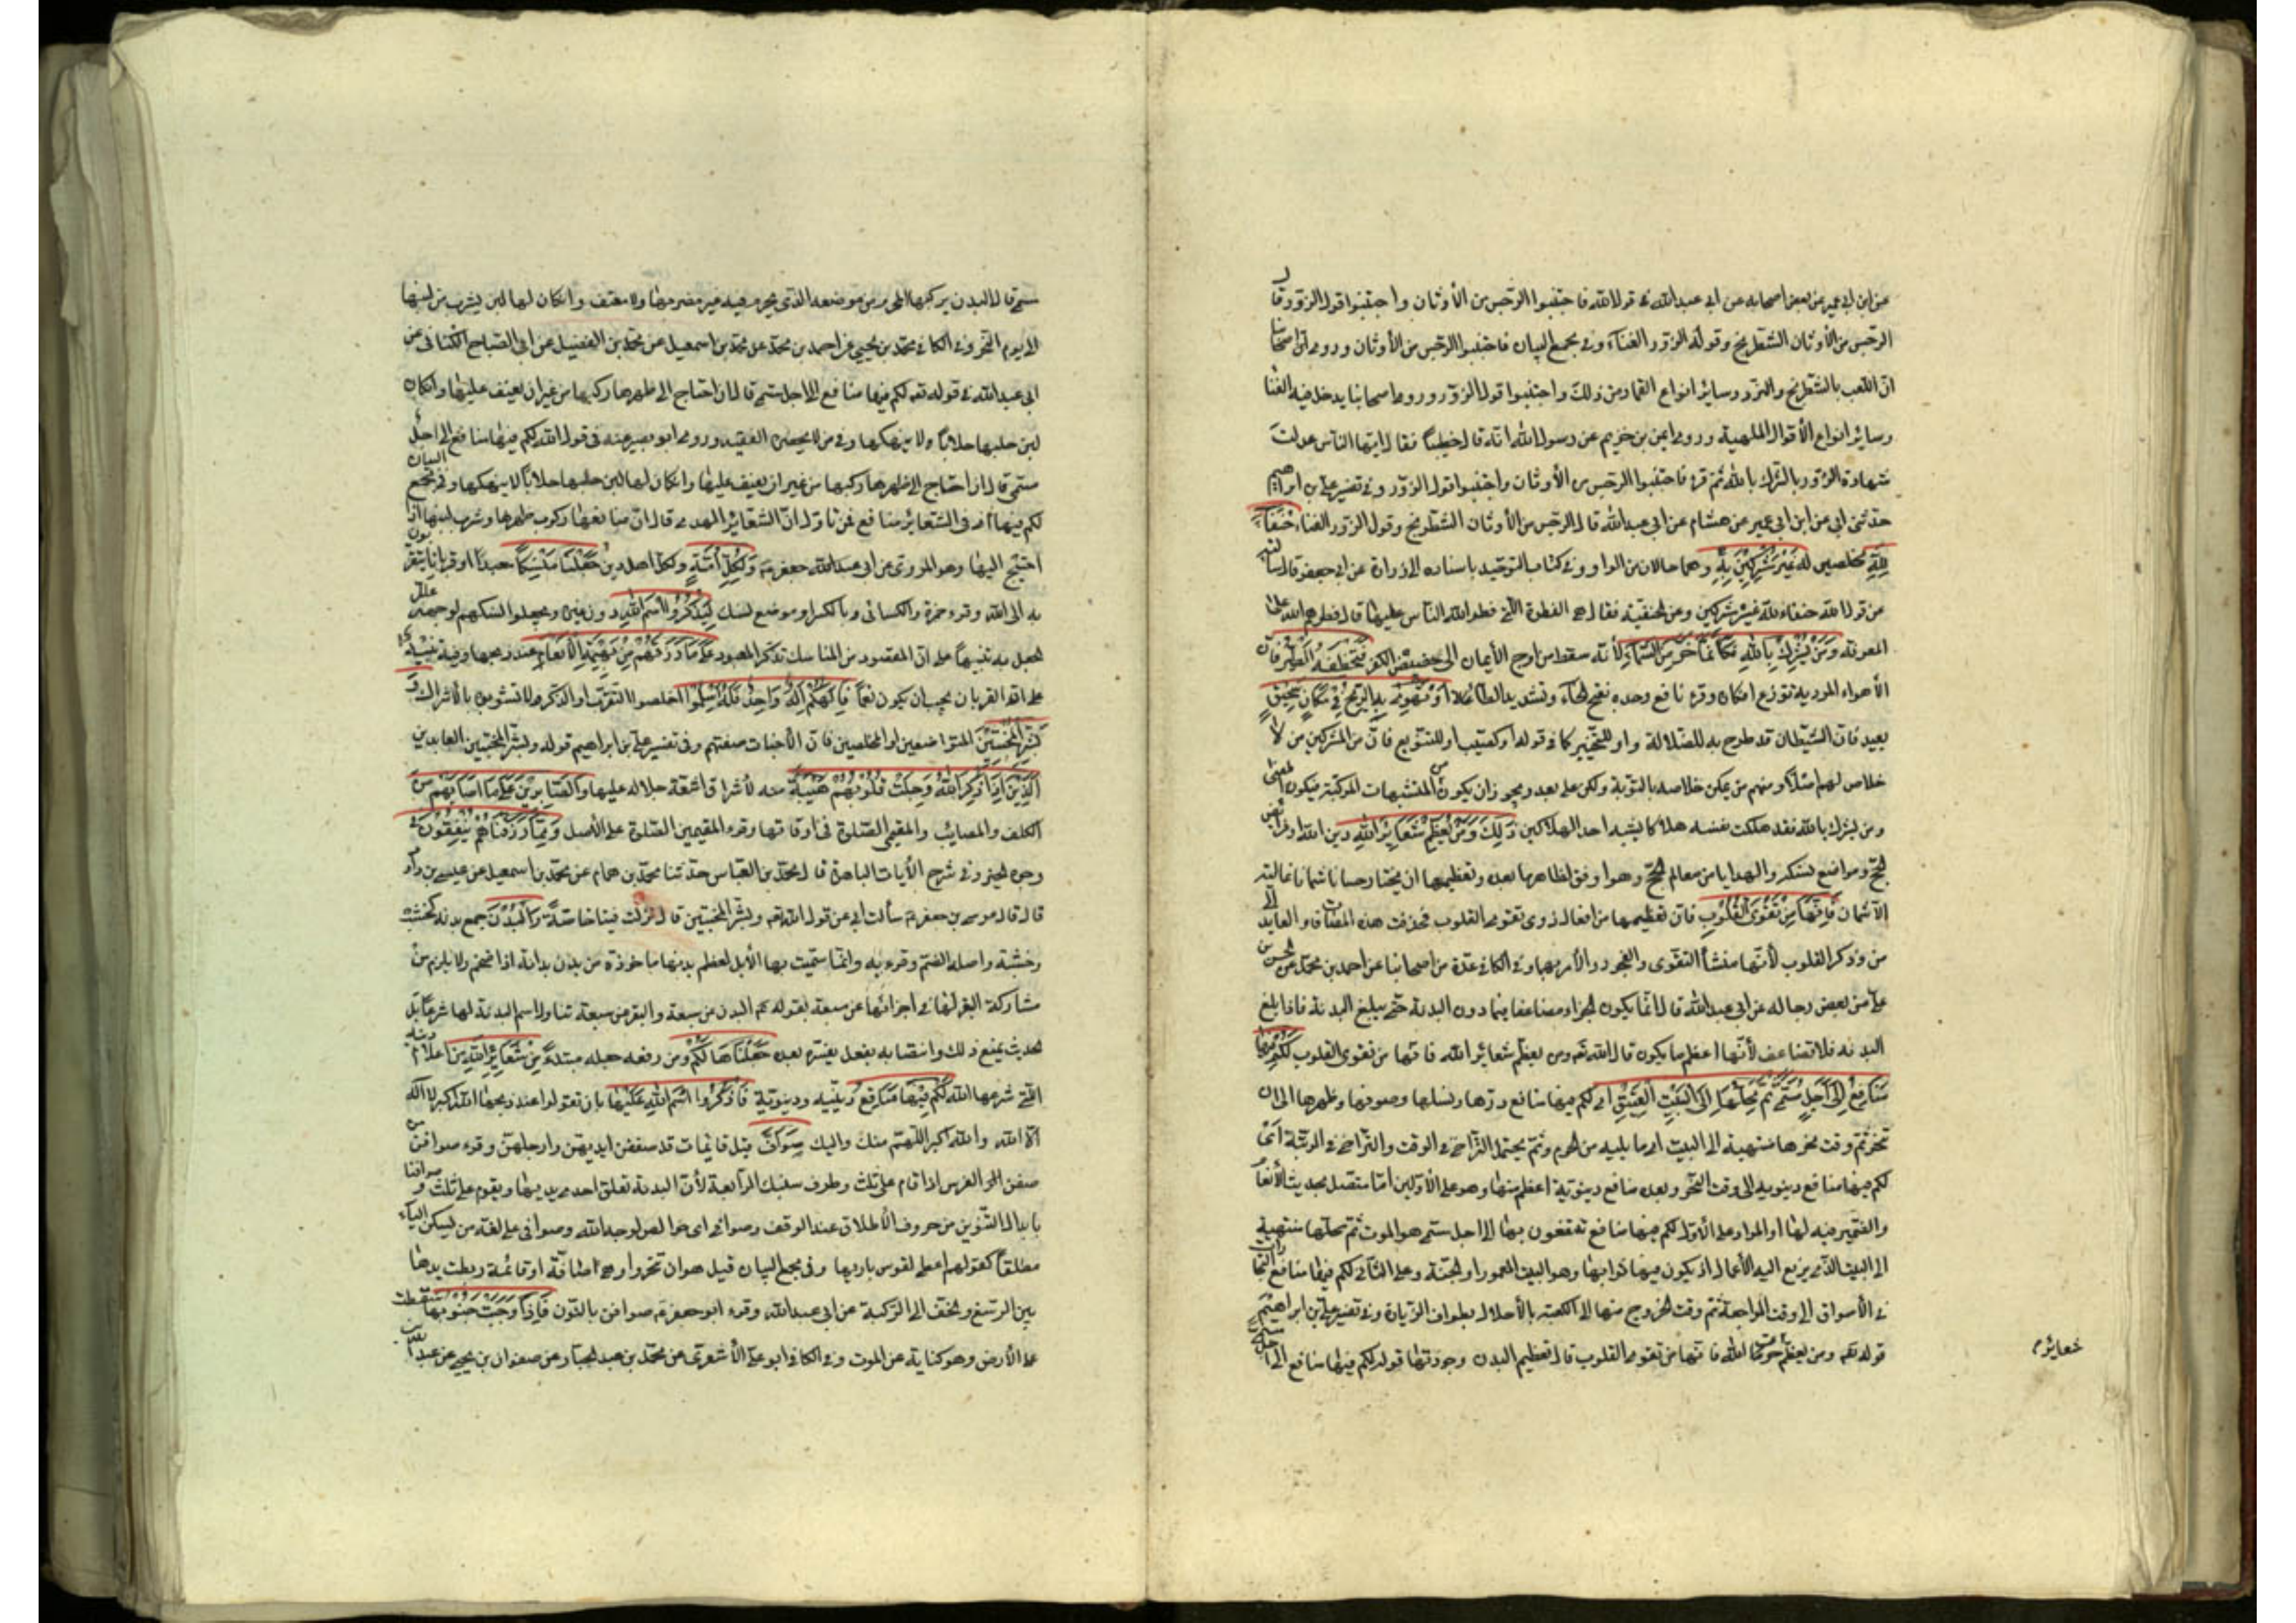 عن ابن ابي عمير عن بعض اصحابه عن ابي عبد الله في قول الله فاجتنبوا الرجس من الأوثان واجتنبوا قول الزور قال
الرجس من الأوثان الشطرنج وقوله الزور الغناء وفي مجمع البيان فاجتنبوا الرجس من الأوثان وروى اصحابنا
ان اللعب بالشطرنج والنرد وسائر انواع القمار من ذلك واجتنبوا قول الزور وروى اصحابنا يدخل فيه الغنا
وسائر انواع الأقوال الملهية وروى ايمن بن خزيم عن رسول الله انه قال خطيبا فقال ايها الناس عدلت
شهادة الزور بالشرك بالله ثم قرء فاجتنبوا الرجس من الأوثان واجتنبوا قول الزور وفي تفسير علي بن ابراهيم
حدثني ابي عن ابن ابي عمير عن هشام عن ابي عبد الله قال الرجس من الأوثان الشطرنج وقول الزور الغناء حُنَفَاءَ
لِلَّهِ مخلصين له غَيْرَ مُشْرِكِينَ بِهِ وهما حالان من الواو وفي كتاب التوحيد باسناده الى زرارة عن ابي جعفر قال سألته
عن قول الله حنفاء لله غير مشركين وعن الحنفية فقال هي الفطرة التي فطر الله الناس عليها قال فطرهم الله على
المعرفة وَمَنْ يُشْرِكْ بِاللَّهِ فَكَأَنَّمَا خَرَّ مِنَ السَّمَاءِ لأنه سقط من اوج الأيمان الى حضيض الكفر فَتَخْطَفُهُ الطَّيْرُ فان
الأهواء المردية توزع افكاره وقرء نافع وحده بفتح الخاء وتشديد الطاء أَوْ تَهْوِي بِهِ الرِّيحُ فِي مَكَانٍ سَحِيقٍ
بعيد فان الشيطان قد طرح به للضلالة واو للتخيير كما في قوله او كصيب او للتنويع فان من المشركين من لا
خلاص لهم اصلا ومنهم من يمكن خلاصه بالتوبة ولكن على بعد ويجوز ان يكون من التشبيهات المركبة فيكون المعنى
ومن يشرك بالله فقد هلكت نفسه هلاكا يشبه احد الهلاكين ذَلِكَ وَمَنْ يُعَظِّمْ شَعَائِرَ اللَّهِ دين الله او فرائض
الحج ومواضع نسكه او الهدايا من معالم الحج وهو اوفق لظاهر ما بعده وتعظيمها ان يختار حسانا سمانا غالية
الأثمان فَإِنَّهَا مِنْ تَقْوَى الْقُلُوبِ فان تعظيمها من افعال ذوي تقوى القلوب فحذفت هذه المضافات والعايد الى
من وذكر القلوب لأنها منشأ التقوى والفجور والأمر بهما وفي الكافي عدة من اصحابنا عن احمد بن محمد عن الحسن بن
علي عن بعض رجاله عن ابي عبد الله قال انما يكون الجزاء مضاعفا فيما دون البدنة حتى يبلغ البدنة فاذا بلغ
البدنة فلا تضاعف لأنها اعظم ما يكون قال الله تعه ومن يعظم شعائر الله فانها من تقوى القلوب لَكُمْ فِيهَا
مَنَافِعُ إِلَى أَجَلٍ مُسَمًّى ثُمَّ مَحِلُّهَا إِلَى الْبَيْتِ الْعَتِيقِ اي لكم فيها منافع درها ونسلها وصوفها وظهرها الى ان
تنحر ثم وقت نحرها منتهية الى البيت اي ما يليه من الحرم وثم يحتمل التراخي في الوقت والتراخي في الرتبة اي
لكم فيها منافع دنيوية الى وقت النحر وبعده منافع دينوية اعظم منها وهو على الأولين اما متصل بحديث الأنعام
والضمير فيه لها او المراد على الأول لكم فيها منافع تنتفعون بها الى اجل مسمى هو الموت ثم محلها منتهية
الى البيت الذي يرفع اليه الأعمال او يكون فيها ثوابها وهو البيت المعمور او الجنة وعلى الثاني لكم فيها منافع التجارات
في الأسواق الى وقت المراجعة ثم وقت الخروج منها الى الكعبة بالأحلال بطواف الزيارة وفي تفسير علي بن ابراهيم
قوله تعه ومن يعظم حرمات الله فانها من تقوى القلوب قال تعظيم البدن وجودتها قوله لكم فيها منافع الى اجل مسمى
شعائر م
مسمى قال البدن يركبها المحرم من موضعه الذي يحرم فيه غير مضر بها ولا معنف وان كان لها لبن يشرب من لبنها
الى يوم النحر وفي الكافي محمد بن يحيى عن احمد بن محمد عن محمد بن اسمعيل عن محمد بن الفضيل عن ابي الصباح الكناني عن
ابي عبد الله في قوله تعه لكم فيها منافع الى اجل مسمى قال ان احتاج الى ظهرها ركبها من غير ان يعنف عليها وان كان
لبن حلبها حلابا ولا ينهكها وفي من لا يحضره الفقيه وروى ابو بصير عنه في قول الله لكم فيها منافع الى اجل
مسمى قال ان احتاج الى ظهرها ركبها من غير ان يعنف عليها وان كان لها لبن حلبها حلابا لا ينهكها وفي مجمع البيان
لكم فيها اي في الشعائر منافع فمن تأول ان الشعائر الهدي قال ان منافعها ركوب ظهرها وشرب لبنها اذا
احتيج اليها وهو المروي عن ابي جعفر م وَلِكُلِّ أُمَّةٍ ولكل اهل دين جَعَلْنَا مَنْسَكًا متعبدا او قربانا يتقربون
به الى الله وقرء حمزة والكسائي وبالكسر اي موضع نسك لِيَذْكُرُوا اسْمَ اللَّهِ دون غيره ويجعلوا نسكهم لوجهه علل
الجعل به تنبيها على ان المقصود من المناسك تذكر المعبود عَلَى مَا رَزَقَهُمْ مِنْ بَهِيمَةِ الْأَنْعَامِ عند ذبحها وفيه تنبيه
على ان القربان يجب ان يكون نعما فَإِلَهُكُمْ إِلَهٌ وَاحِدٌ فَلَهُ أَسْلِمُوا اخلصوا التقرب او الذكر ولا تشوبوه بالأشراك وَ
بَشِّرِ الْمُخْبِتِينَ المتواضعين او المخلصين فان الأخبات صفتهم وفي تفسير علي بن ابراهيم قوله وبشر المخبتين العابدين
الَّذِينَ إِذَا ذُكِرَ اللَّهُ وَجِلَتْ قُلُوبُهُمْ هيبة منه لأشراق اشعة جلاله عليها وَالصَّابِرِينَ عَلَى مَا أَصَابَهُمْ من
الكلف والمصائب والمقيمي الصلوة في اوقاتها وقرء المقيمين الصلوة على الأصل وَمِمَّا رَزَقْنَاهُمْ يُنْفِقُونَ في
وجوه الخير وفي شرح الأيات الباهرة قال محمد بن العباس حدثنا محمد بن همام عن محمد بن اسمعيل عن عيسى بن داود
قال قال موسى بن جعفر م سألت ابي عن قول الله تعه وبشر المخبتين قال نزلت فينا خاصة وَالْبُدْنَ جمع بدنة كخشب
وخشبة واصله الضم وقرء به وانما سميت بها الأبل لعظم بدنها مأخوذة من بدن بدانة اذا ضخم ولا يلزم من
مشاركة البقر لها في اجزائها عن سبعة بقوله عم البدن من سبعة والبقر من سبعة تناول اسم البدنة لها شرعا بل
الحديث يمنع ذلك وانتصابه بفعل يفسره بعده جَعَلْنَاهَا لَكُمْ ومن رفعه جعله مبتدأ مِنْ شَعَائِرِ اللَّهِ من اعلام دينه
التي شرعها الله لَكُمْ فِيهَا مَنَافِعُ دينية ودينوية فَاذْكُرُوا اسْمَ اللَّهِ عَلَيْهَا بان تقولوا عند ذبحها الله اكبر لا اله
الا الله والله اكبر اللهم منك واليك صَوَافَّ قائمات قد صففن ايديهن وارجلهن وقرء صوافن من
صفن الفرس اذا قام على ثلث وطرف سنبك الرابعة لأن البدنة تعلق احدى يديها ويقوم على ثلث وصوافنا
بابدال التنوين من حروف الأطلاق عند الوقف وصوافي اي خوالص لوجه الله وصوافي على لغة من يسكن الياء
مطلقا كقولهم اعط القوس باريها وفي مجمع البيان قيل هو ان تنحر وهي صافة او قائمة ربطت يدها
بين الرسغ والخف الى الركبة عن ابي عبد الله وقرء ابو جعفر م صوافن بالنون فَإِذَا وَجَبَتْ جُنُوبُهَا سقطت
على الأرض وهو كناية عن الموت وفي الكافي ابو علي الأشعري عن محمد بن عبد الجبار عن صفوان بن يحيى عن عبد الله بن